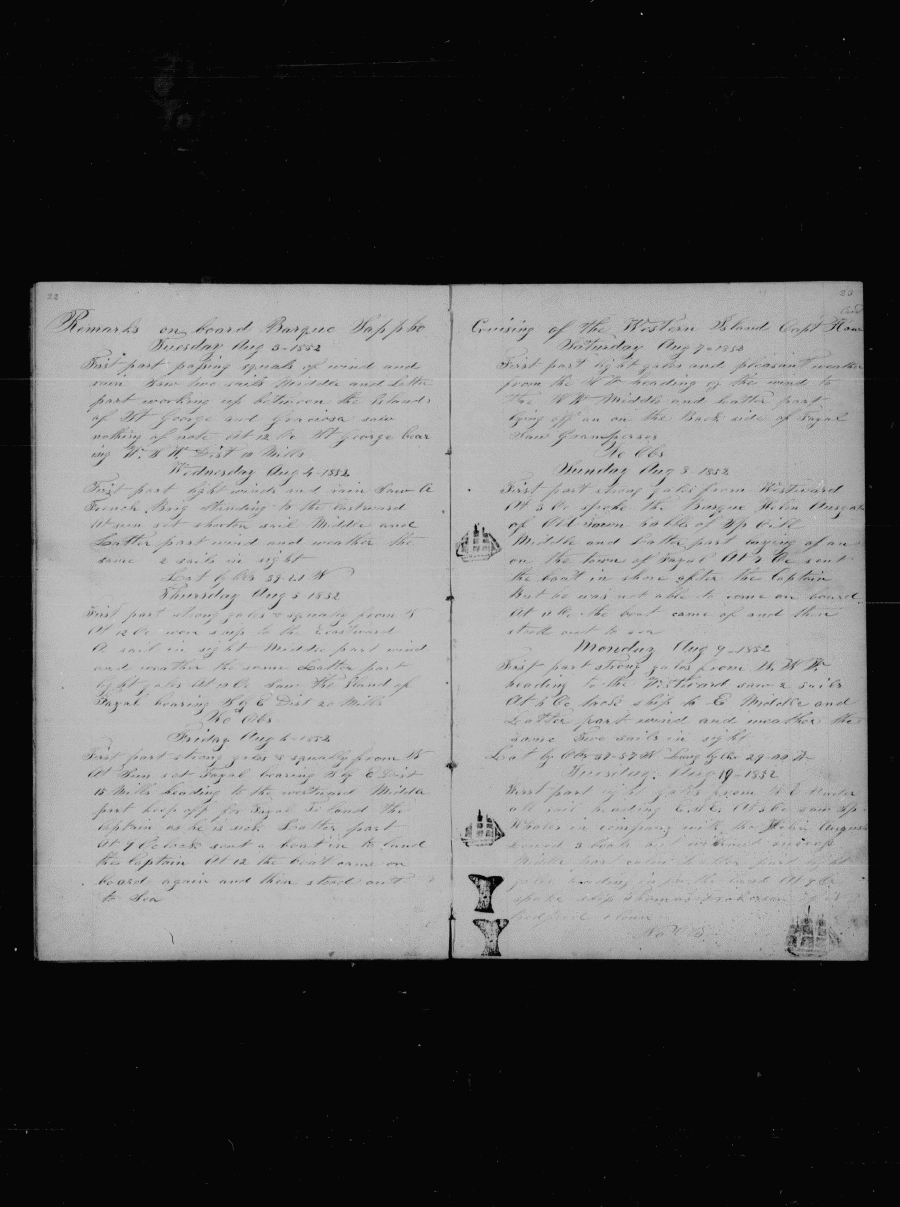 22
Remarks on board Barque Sappho
Tuesday Aug 3-1852
First part passing squals of wind and
rain Saw two sails Middle and latter
part working up between the Islands
of St George and Graciosa saw
nothing of note At 12 Oc St George bear
ing W. S W. Dist 10 Mills
Wednesday Aug 4-1852
First part light winds and rain Saw A
French Brig Standing to the Eastward
At sun set shorten sail Middle and
Latter part wind and weather the
same 2 sails in sight
Lat by Obs 39-21 N
Thursday Aug 5 1852
First part strong gales & squally from
At 12 Oc wore ship to the Eastward
A sail in sight Middle part wind
and weather the same Latter part
light gales At 10 Oc Saw the Iland of
Fayal bearing by E Dist 20 Mills
No Obs
Friday Aug 6-1852
First part strong gales & squally from
At Sun set Fayal bearing by E Dist
15 Mills heading to the westward Middle
part keep off for Fayal To land the
Captain as he is sick Latter part
At 9 Oclock sent a boat in to land
the Captain At 12 the boat came on
board again and then stood out
to Sea
23
Cruising of the Western Island Capt
Saturday Aug 7-1852
First part light gales and pleasant weather
from the heading of the wind to
the Middle and Latter part
lying off an on the Back side of Fayal
Saw Grampusses
No Obs
Sunday Aug 8-1852
First part strong gales from Westward
At 3 Oc spoke the Barque Helen Augusta
of town 60 bbls of Sp Oil
Middle and Latter part laying of an
on the town of Fayal At 9 Oc sent
the boat in shore after the Captain
But he was not able to come on board
At 11 Oc the boat came of and then
stood out to sea
Monday Aug 9-1852
First part strong gales from
heading to the Westward saw 2 sails
At 6 Oc took ship to E Middle and
Latter part wind and weather the
same Two sails in sight
Lat by Obs 37-57 N Long by Chr 29-02 W
Tuesday. Aug 10-1852
First part light gales from Under
all sail heading At 3 Oc saw Sp
Whales in company with the Helen Augusta
lowered 3 boats but without success
Middle part calm Latter part light
gales heading in for the land At 9 Oc
spoke ship Thomas of
town
No Obs